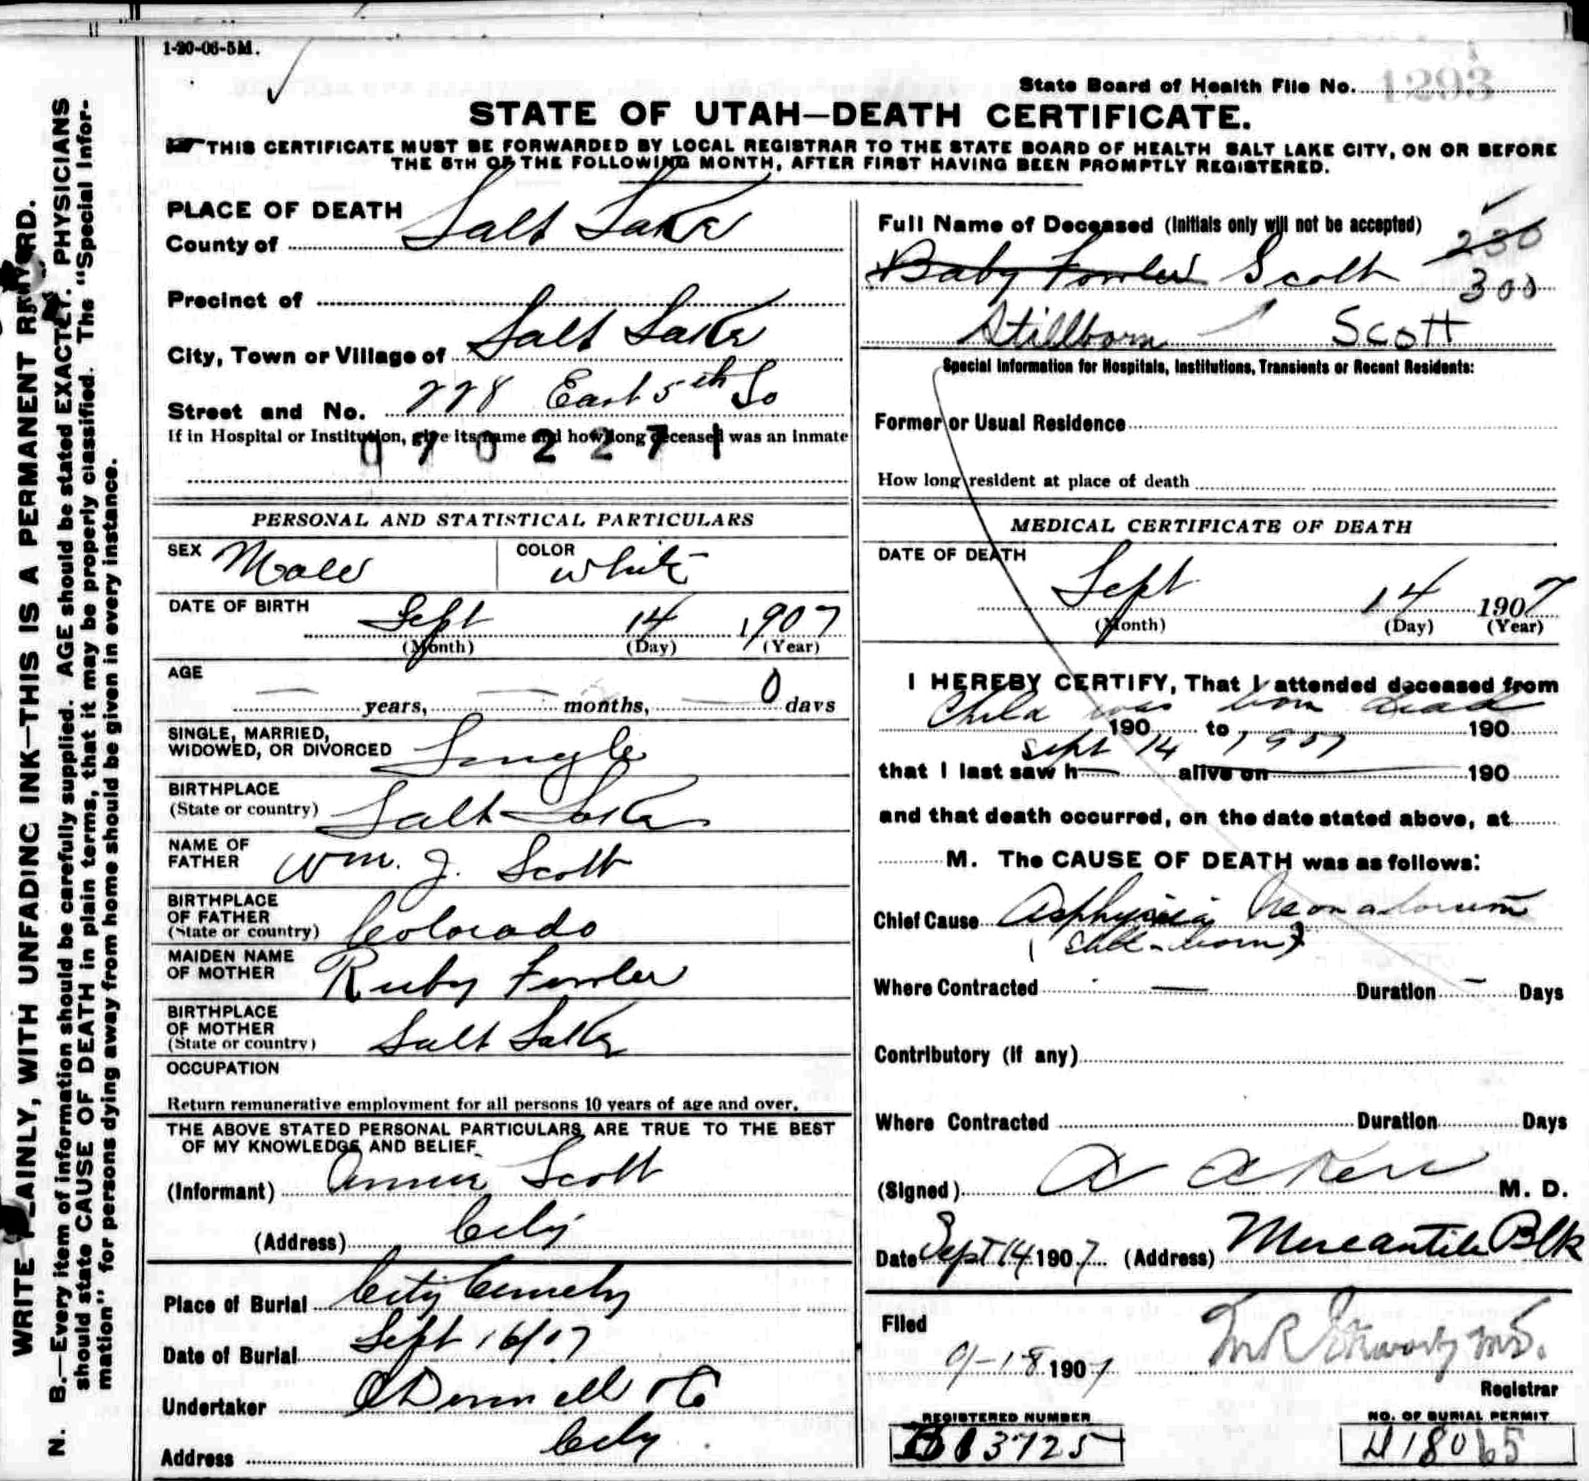 1-20-06-5M.
State Board of Health File No. 1293
STATE OF UTAH—DEATH CERTIFICATE.
THIS CERTIFICATE MUST BE FORWARDED BY LOCAL REGISTRAR TO THE STATE BOARD OF HEALTH SALT LAKE CITY, ON OR BEFORE
THE 5TH OF THE FOLLOWING MONTH, AFTER FIRST HAVING BEEN PROMPTLY REGISTERED.
WRITE PLAINLY, WITH UNFADING INK—THIS IS A PERMANENT RECORD.
N. B.—Every item of information should be carefully supplied. AGE should be stated EXACTLY. PHYSICIANS
should state CAUSE OF DEATH in plain terms, that it may be properly classified. The "Special Infor-
mation" for persons dying away from home should be given in every instance.
PLACE OF DEATH
County of Salt Lake
Precinct of
City, Town or Village of Salt Lake
Street and No. 778 East 5th So
If in Hospital or Institution, give its name and how long deceased was an inmate
0702271
PERSONAL AND STATISTICAL PARTICULARS
SEX Male COLOR White
DATE OF BIRTH Sept 14 1907
(Month) (Day) (Year)
AGE
— years, — months, — 0 days
SINGLE, MARRIED,
WIDOWED, OR DIVORCED Single
BIRTHPLACE
(State or country) Salt Lake
NAME OF
FATHER Wm. J. Scott
BIRTHPLACE
OF FATHER
(State or country) Colorado
MAIDEN NAME
OF MOTHER Ruby Fowler
BIRTHPLACE
OF MOTHER
(State or country) Salt Lake
OCCUPATION
Return remunerative employment for all persons 10 years of age and over.
THE ABOVE STATED PERSONAL PARTICULARS ARE TRUE TO THE BEST
OF MY KNOWLEDGE AND BELIEF
(Informant) Annie Scott
(Address) City
Place of Burial City Cemetery
Date of Burial Sept 16/07
Undertaker O'Donnell & Co
Address City
Full Name of Deceased (Initials only will not be accepted) 230
Baby Fowler Scott 300
Stillborn Scott
Special Information for Hospitals, Institutions, Transients or Recent Residents:
Former or Usual Residence
How long resident at place of death
MEDICAL CERTIFICATE OF DEATH
DATE OF DEATH
Sept 14 1907
(Month) (Day) (Year)
I HEREBY CERTIFY, That I attended deceased from
Child was born dead
190 to 190
Sept 14 1907
that I last saw h— alive on 190
and that death occurred, on the date stated above, at
M. The CAUSE OF DEATH was as follows:
Chief Cause Asphyxia Neonatorum
(still-born)
Where Contracted — Duration — Days
Contributory (if any)
Where Contracted Duration Days
(Signed) M. D.
Date Sept 14 1907 (Address) Mercantile Blk
Filed
9-18 1907
Registrar
REGISTERED NUMBER NO. OF BURIAL PERMIT
3725